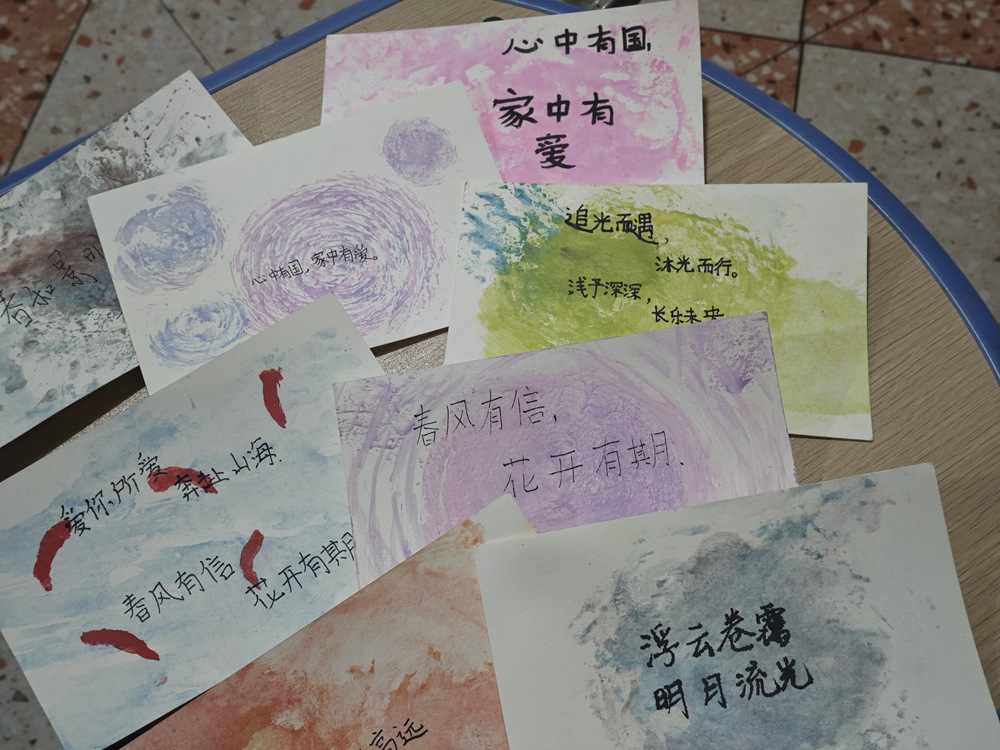 心中有国,
家中有
爱
春和景明
心中有国,家中有爱。
追光而遇,
沐光而行。
浅予深深,
长乐未央
爱你所爱
奔赴山海.
春风有信
花开有期
春风有信,
花开有期.
高远
浮云卷霭
明月流光